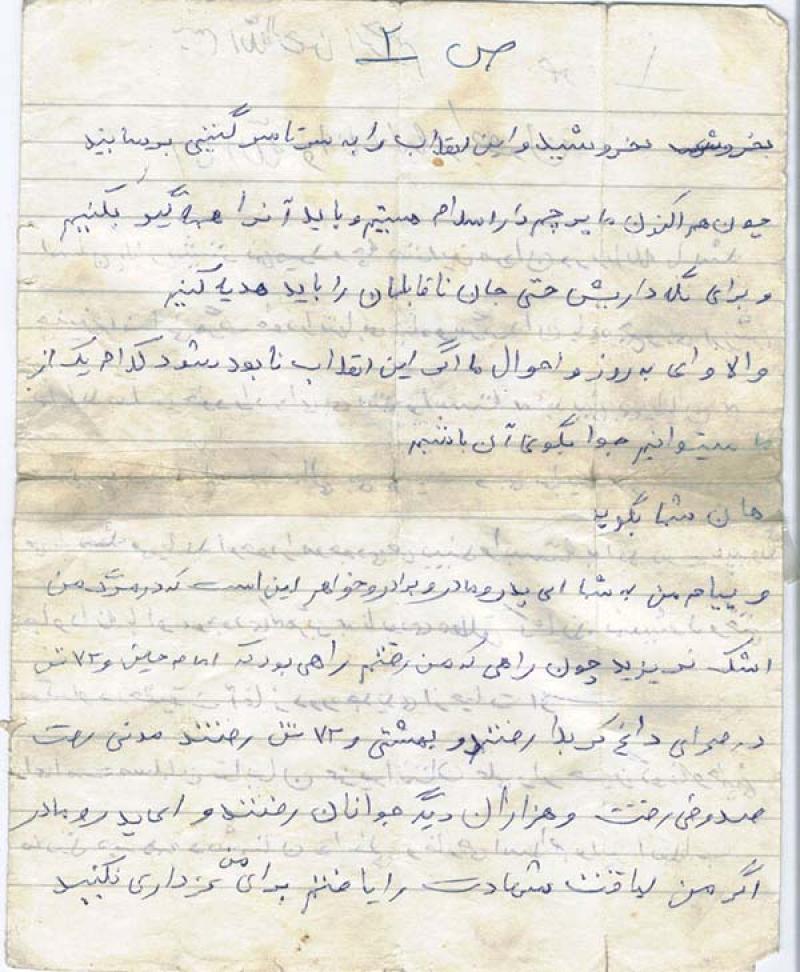 ص ۲
بخروش بخروشید و این انقلاب را به سرتاسر گیتی برسانید
چون هم اکنون ما پرچم دار اسلام هستیم و باید آنرا همه گیر بکنیم
و برای نگه داریش حتی جان ناقابلمان را باید هدیه کنیم
والا وای به روز و احوال ما اگر این انقلاب نابود بشود کدام یک از
ما میتوانیم جوابگوی آن باشیم
هان شما بگوید
و پیام من به شما ای پدر و مادر و برادر و خواهر این است که در مرگ من
اشک نریزید چون راهی که من رفتم راهی بود که امام حسین و ۷۲ تن
در صحرای داغ کربلا رفتند و بهشتی و ۷۲ تن رفتند مدنی رفت
صدوقی رفت و هزاران دیگر جوانان رفتند و ای پدر و مادر
اگر من لیاقت شهادت را یافتم برای من عزداری نکنید